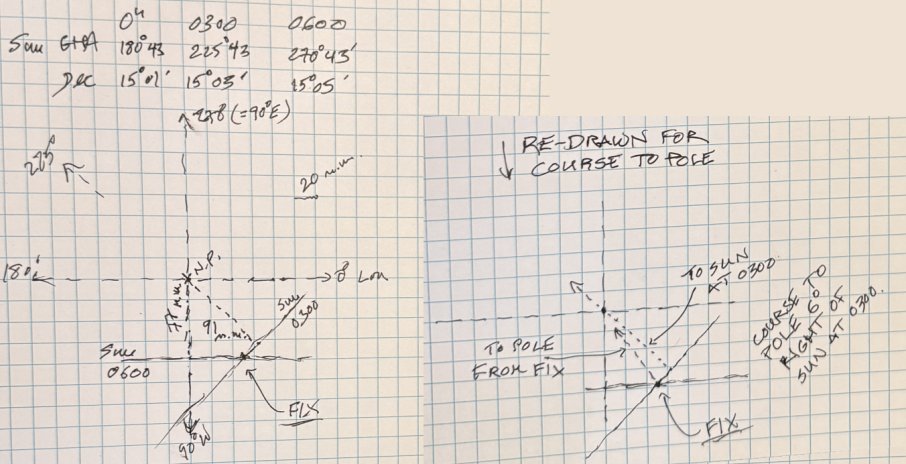 0ʰ 0300 0600
Sun GHA 180°43 225°43 270°43'
Dec 15°01' 15°03' 15°05'
(=90°E)
225°
20 n.m.
180°
N.P.
0° Lon
77 n.m.
91
n.m.
Sun
0300
Sun
0600
FIX
90°W
RE-DRAWN FOR
COURSE TO POLE
TO SUN
AT 0300.
COURSE TO
POLE 6°
RIGHT OF
SUN AT 0300.
TO POLE
FROM FIX
FIX